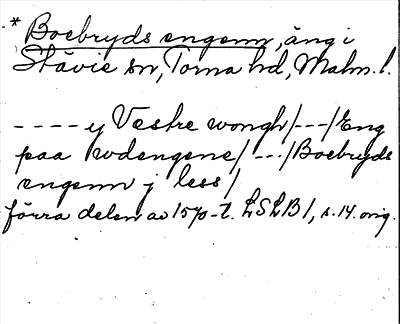 * Boebryds engenn, äng i
Stävie sn, Torna hd, Malm. l.
---- y Vestre wongh/---/Eng
paa wdengene/---/Boebryds
engenn j less/
förra delen av 1570-t. LSLB 1, s. 14. orig.